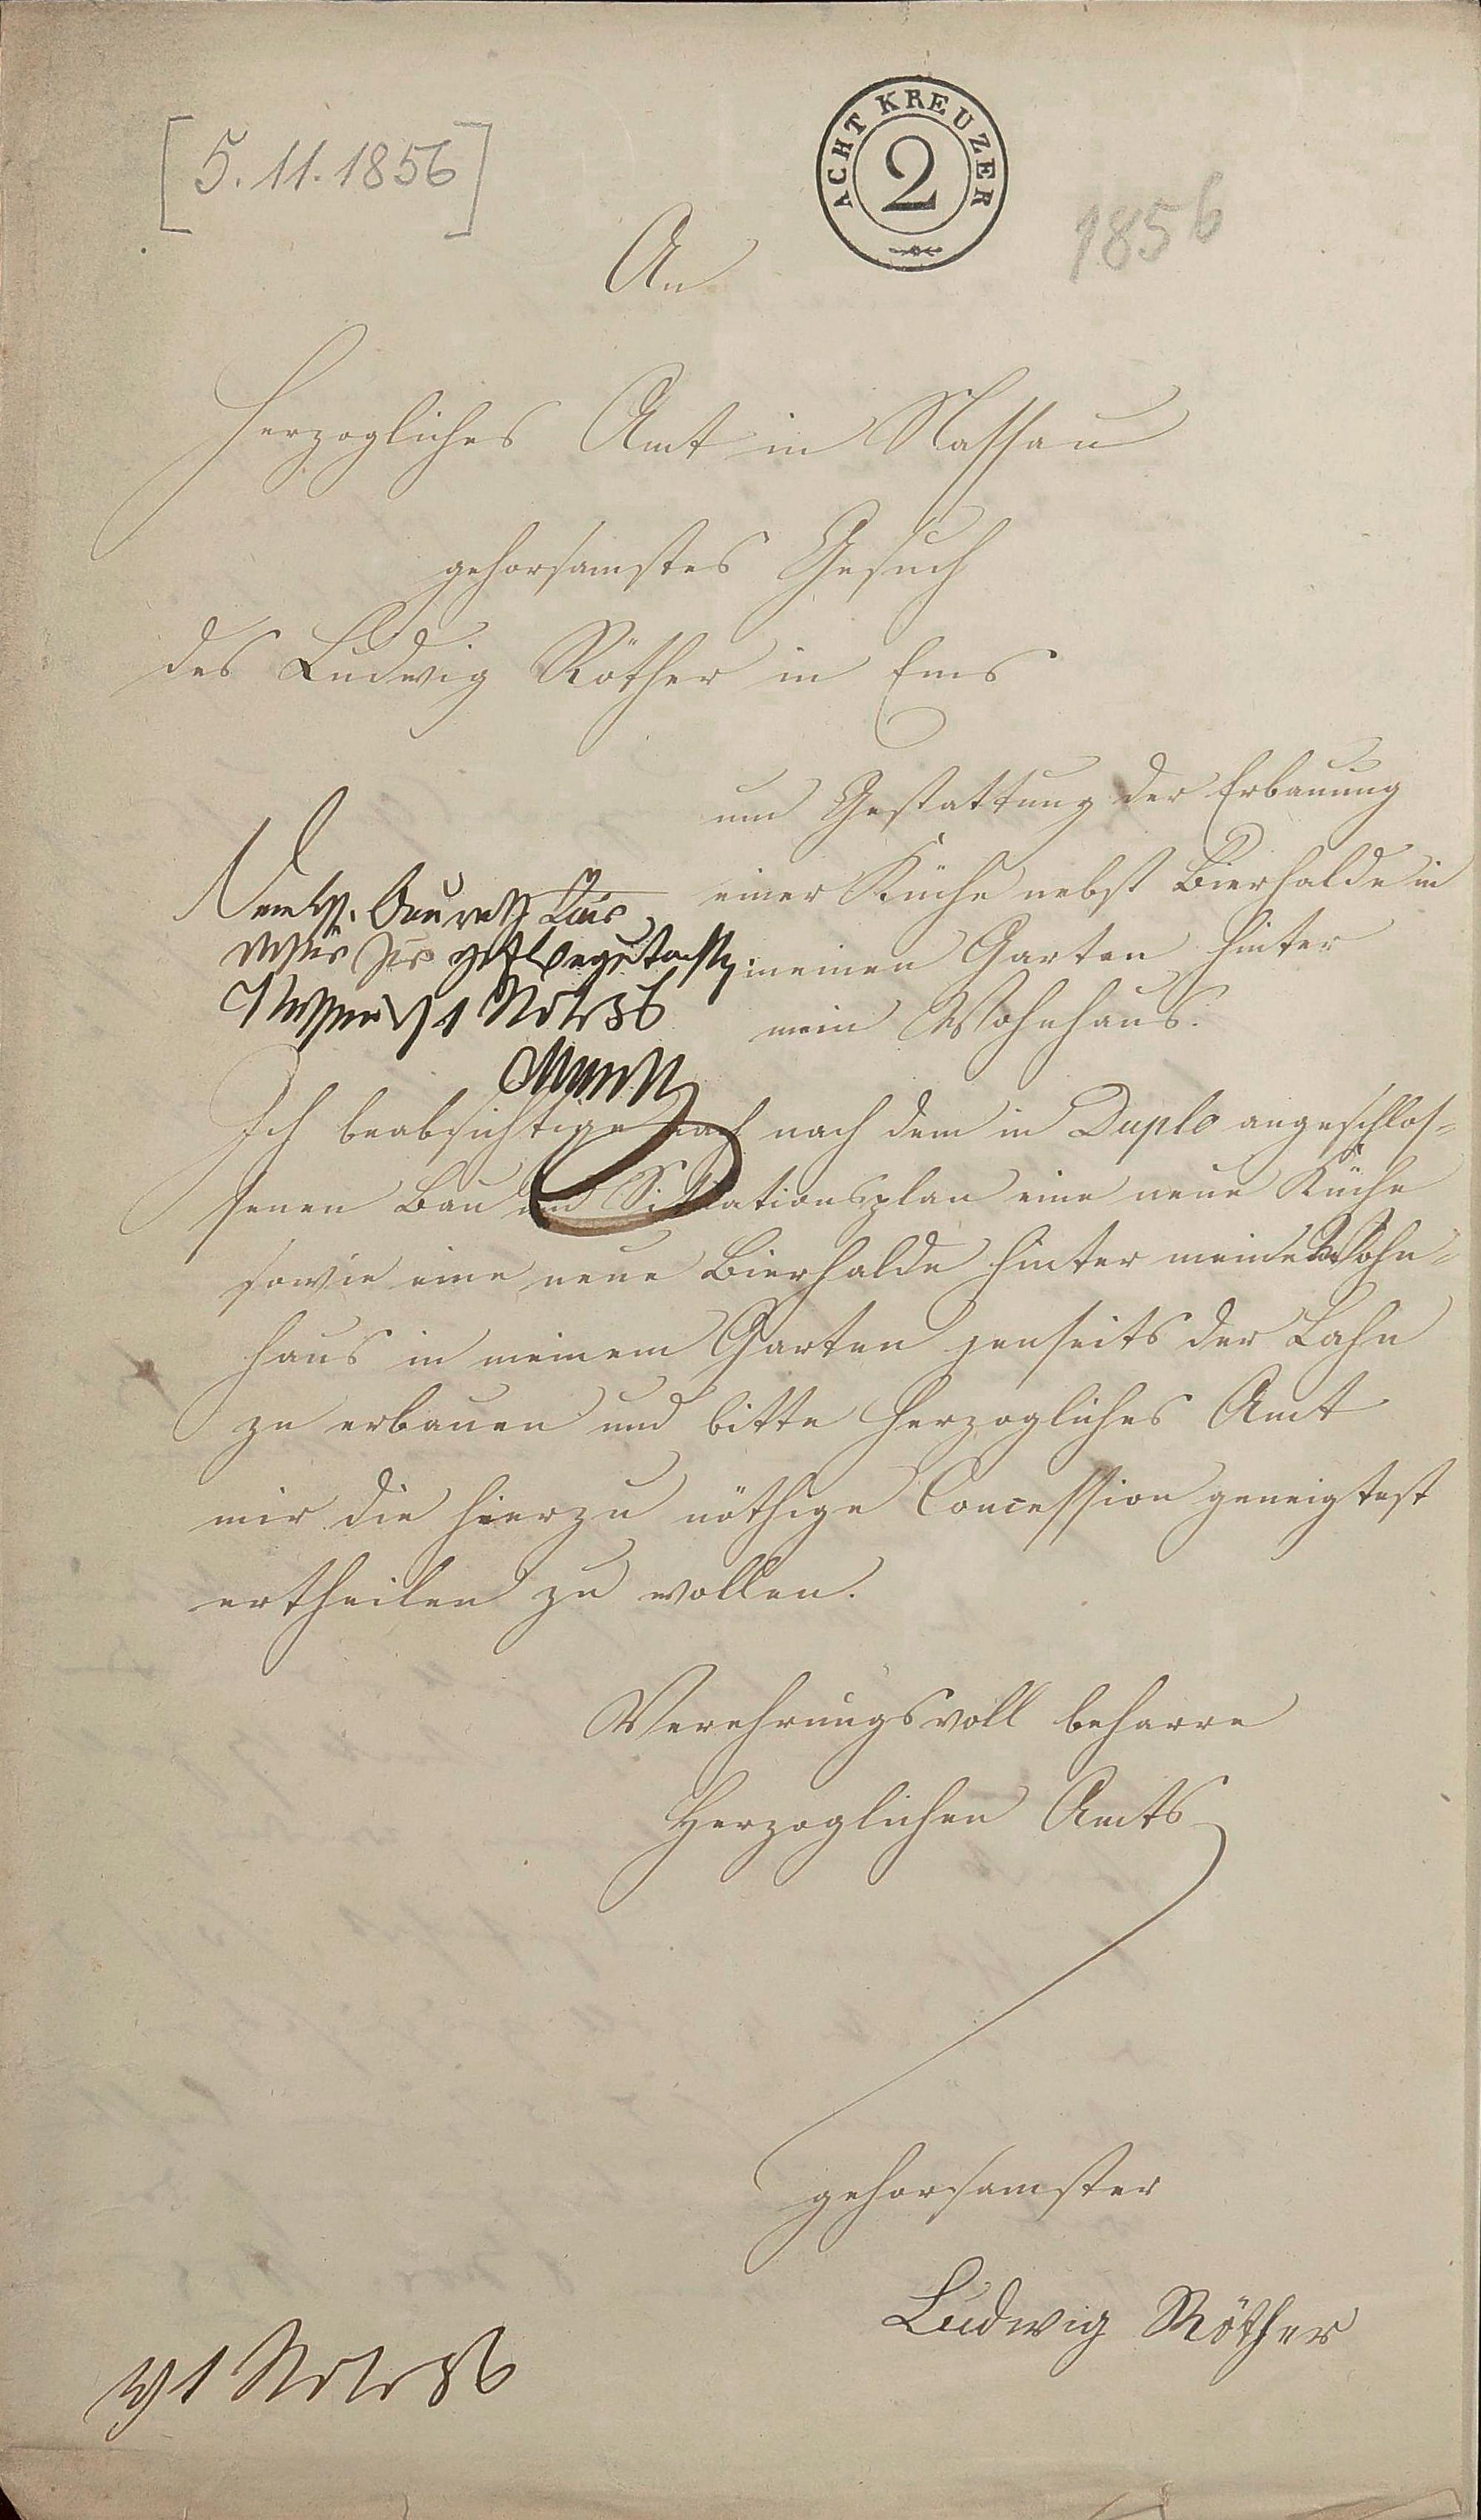 [5.11.1856]
ACHT KREUZER
2
1856
An
Herzogliches Amt in Nassau
gehorsamstes Gesuch
des Ludwig Röther in Ems
um Gestattung der Erbauung
einer Küche nebst Bierhalde in
meinen Garten hinter
mein Wohnhaus.
Ich beabsichtige nach dem in Duplo angeschlos-
senen Bau und Situationsplan eine neue Küche
sowie eine neue Bierhalde hinter meinem Wohn-
haus in meinem Garten jenseits der Lahn
zu erbauen und bitte Herzogliches Amt
mir die hierzu nöthige Concession geneigtest
ertheilen zu wollen.
Verehrungsvoll beharre
Herzoglichen Amts
gehorsamster
Ludwig Röther